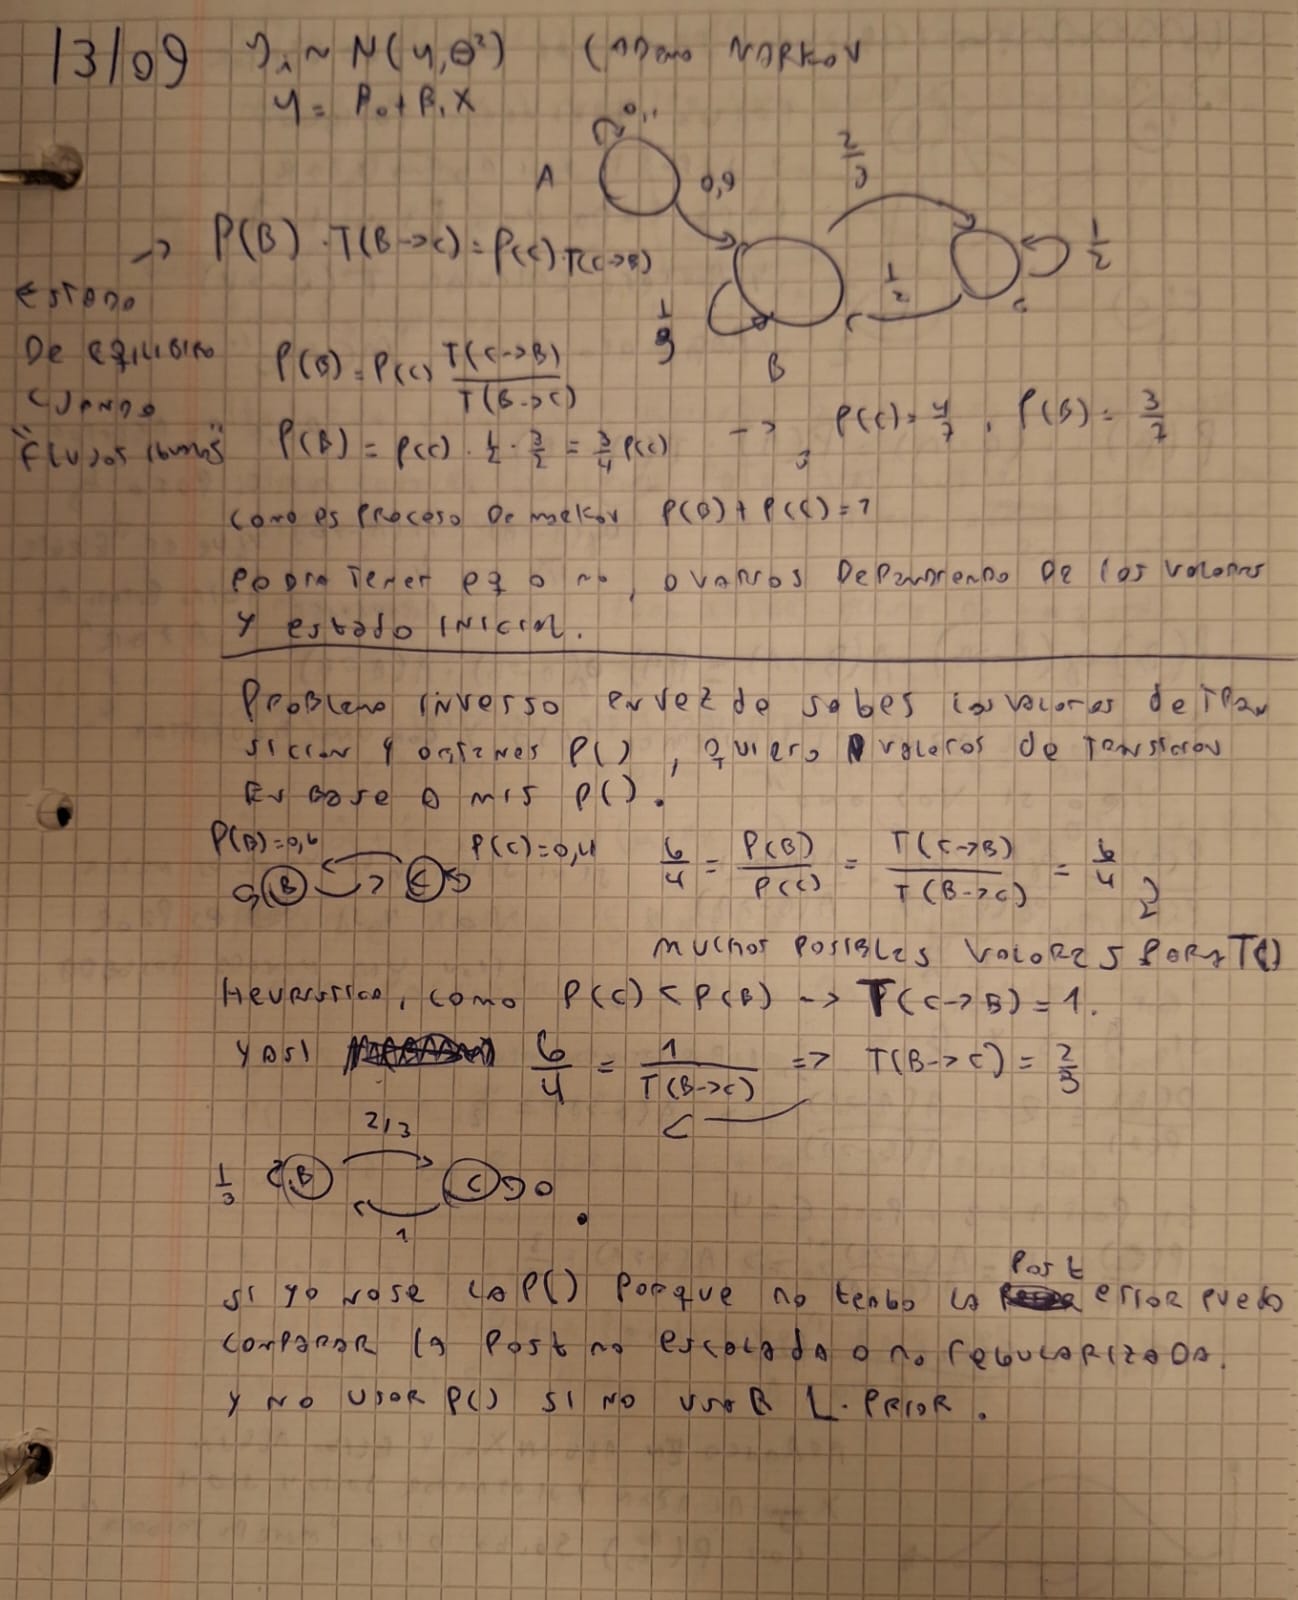 13/09
Yi ~ N(μ, θ²) CADENA MARKOV
μ = B0 + B1 X
A
0,1
0,9
2/3
1/2
1/2
C
1/3
B
-> P(B) · T(B->C) = P(C) T(C->B)
ESTADO
DE EQILIBIRO
CUANDO
"FLUJOS IGUALES"
P(B) = P(C) T(C->B) / T(B->C)
P(B) = P(C) · 1/2 · 3/2 = 3/4 P(C) -> P(C) = 4/7 , P(B) = 3/7
COMO ES PROCESO DE MARKOV P(B) + P(C) = 1
PODRA TENER EQ O NO, O VARIOS DEPENDIENDO DE LOS VALORES
Y ESTADO INICIAL.
PROBLEMA INVERSO EN VEZ DE SABES LOS VALORES DE TRAN
SICION Y P() , QUIERO VALORES DE TRANSICION
EN BASE A MIS P().
P(B)=0,6 P(C)=0,4
B C
6/4 = P(B)/P(C) = T(C->B)/T(B->C) = 6/4
MUCHOS POSIBLES VALORES PARA T()
HEURISTICA, COMO P(C) < P(B) -> T(C->B) = 1.
Y ASI 6/4 = 1/T(B->C) => T(B->C) = 2/3
2/3
1/3 B C 0
1
SI YO NO SE LA P() PORQUE NO TENGO LA POST ERROR PUEDO
COMPARAR LA POST NO ESCALADA O NO REGULARIZADA.
Y NO USAR P() SI NO USAR L · PRIOR.